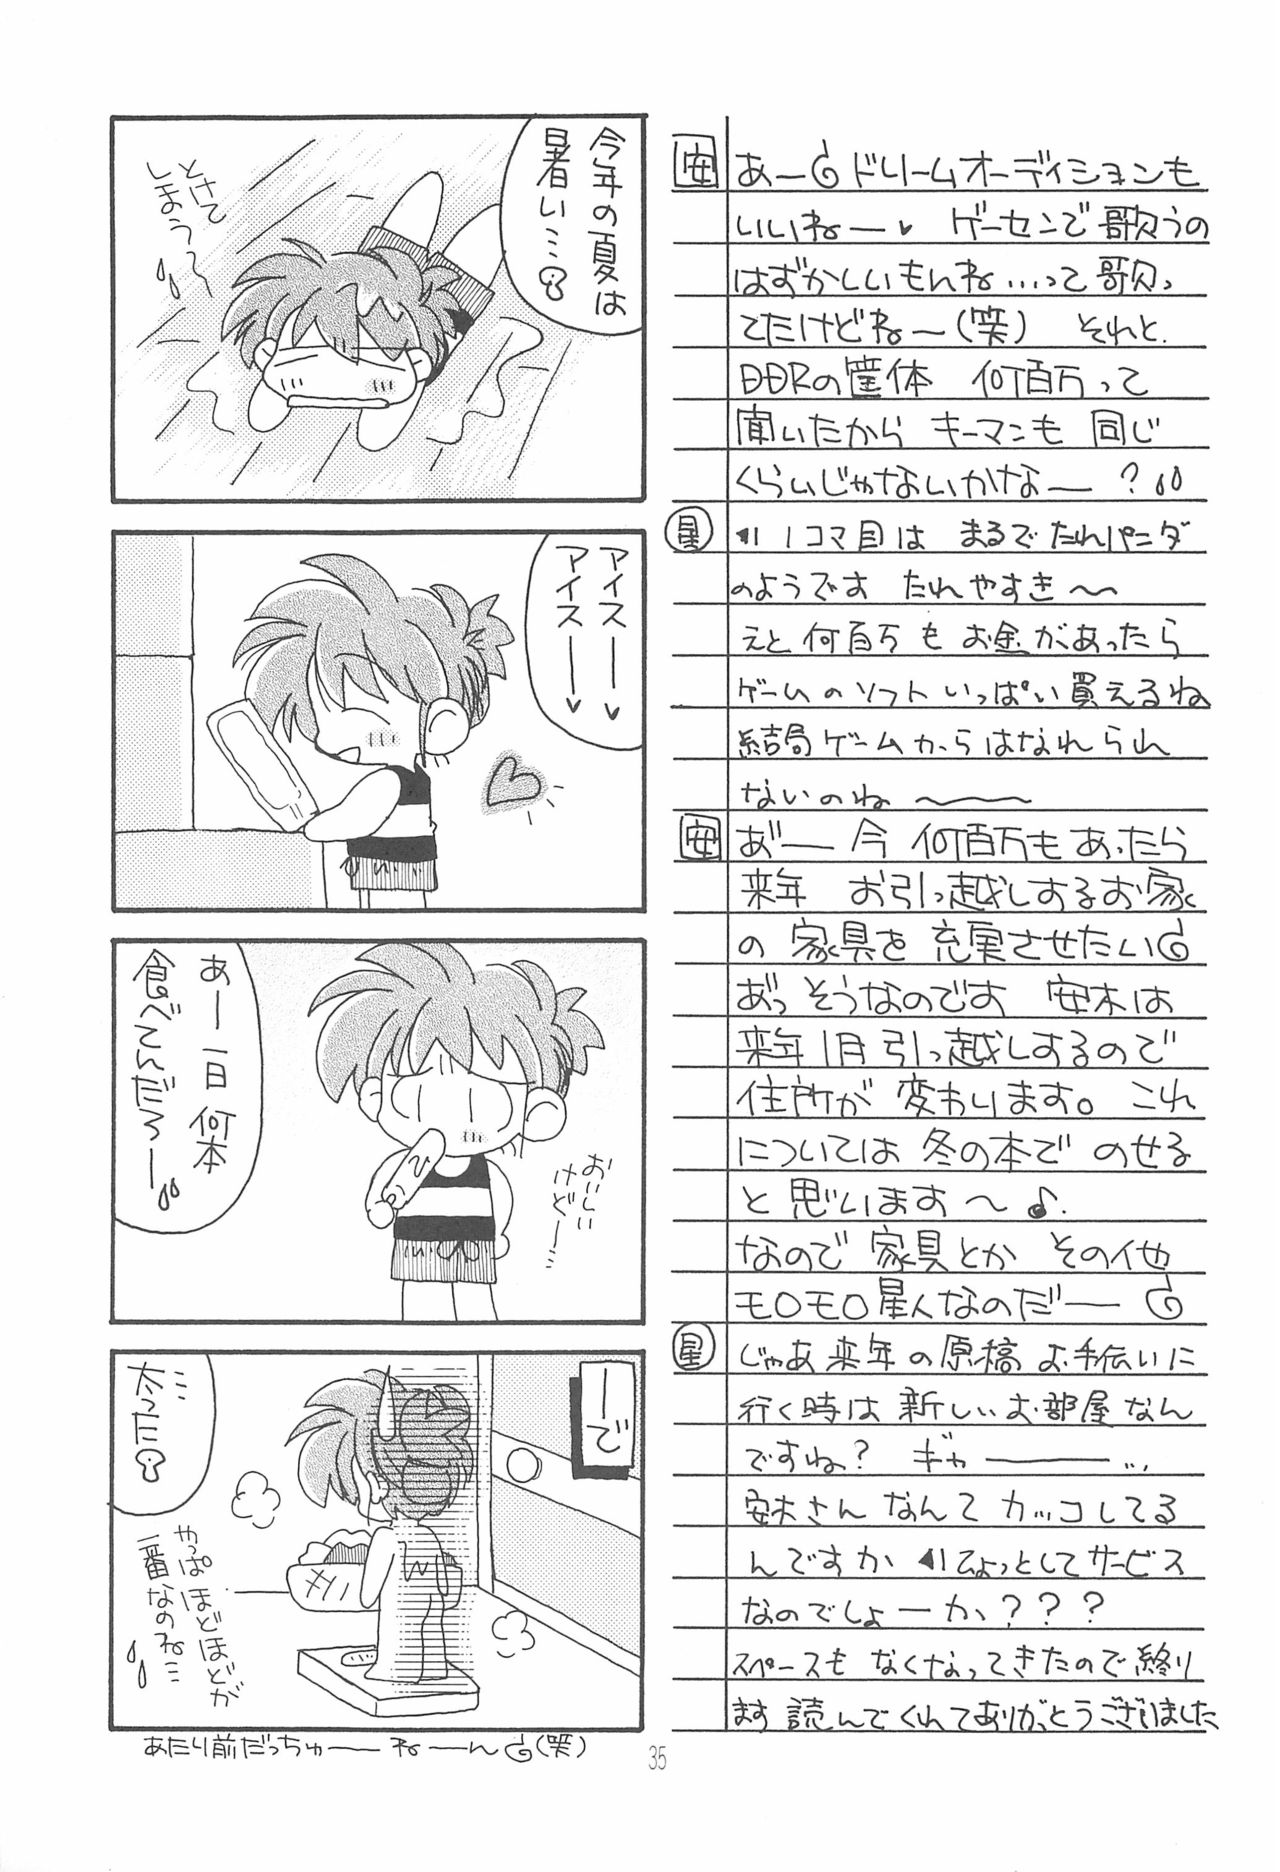 今年の夏は
暑い…
とけて
しまう～
アイスー♥
アイスー♥
あー一日何本
食べてんだろー
おいしい
けどー…
ーで
…太った
やっぱほどほどが
一番なのね…
あたり前だっちゅーねーん(笑)
安 あー ドリームオーディションも
いいねー♥ ゲーセンで歌うの
はずかしいもんね…って歌っ
てたけどねー(笑) それと.
DDRの筐体 何百万って
聞いたから キーマンも 同じ
くらいじゃないかなー?
星 ◀11コマ目は まるでたれパンダ
のようです たれやすき～
えと何百万もお金があったら
ゲームのソフトいっぱい買えるね
結局ゲームからはなれられ
ないのね～
安 あ゛ー 今 何百万もあったら
来年 お引っ越しするお家
の 家具を 充実させたい
あ゛っ そうなのです 安木は
来年1月引っ越しするので
住所が 変わります。これ
については 冬の本で のせる
と思います～♪.
なので 家具とか その他
モロモロ星人なのだー
星 じゃあ来年の原稿お手伝いに
行く時は新しいお部屋なん
ですね? ギャー…
安木さん なんて カッコしてる
んですか ◀ひょっとしてサービス
なのでしょーか???
スペースも なくなってきたので終り
ます 読んでくれてありがとうございました
35